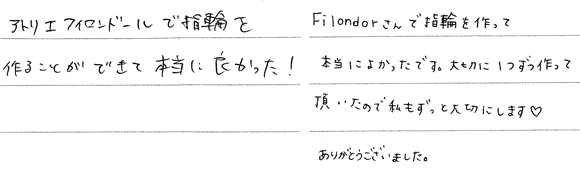 アトリエフィロンドールで指輪を
作ることができて本当に良かった！
Filondorさんで指輪を作って
本当によかったです。大切に1つずつ作って
頂いたので私もずっと大切にします♡
ありがとうございました。